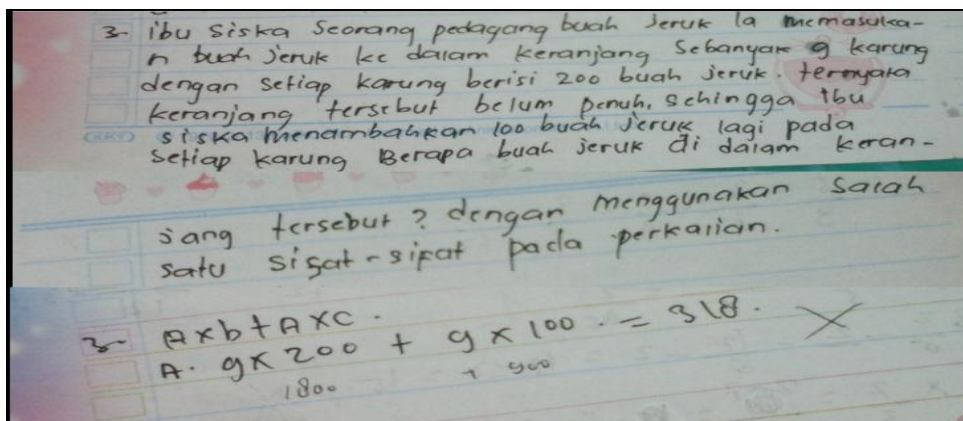 3- ibu Siska Seorang pedagang buah Jeruk Ia memasuka-
n buah jeruk ke dalam keranjang Sebanyak 9 karung
dengan setiap karung berisi 200 buah jeruk. ternyata
keranjang tersebut belum penuh, sehingga ibu
siska menambahkan 100 buah Jeruk lagi pada
setiap karung Berapa buah jeruk di dalam keran-
jang tersebut? dengan menggunakan salah
satu sifat-sifat pada perkalian.
3- A×b+A×c.
A. 9×200 + 9×100. = 318. X
1800 + 900